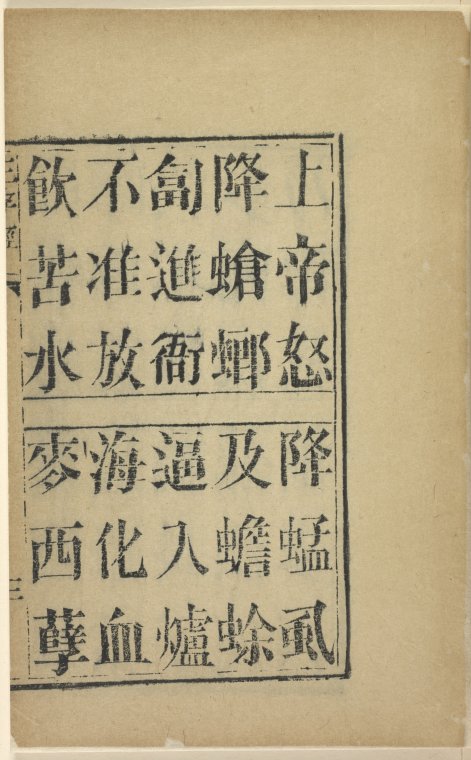 上帝怒 降蜢虱
降螥螂 及蟾蜍
匐進衙 逼入爐
不准放 海化血
飲苦水 麥西孽
三字經
三